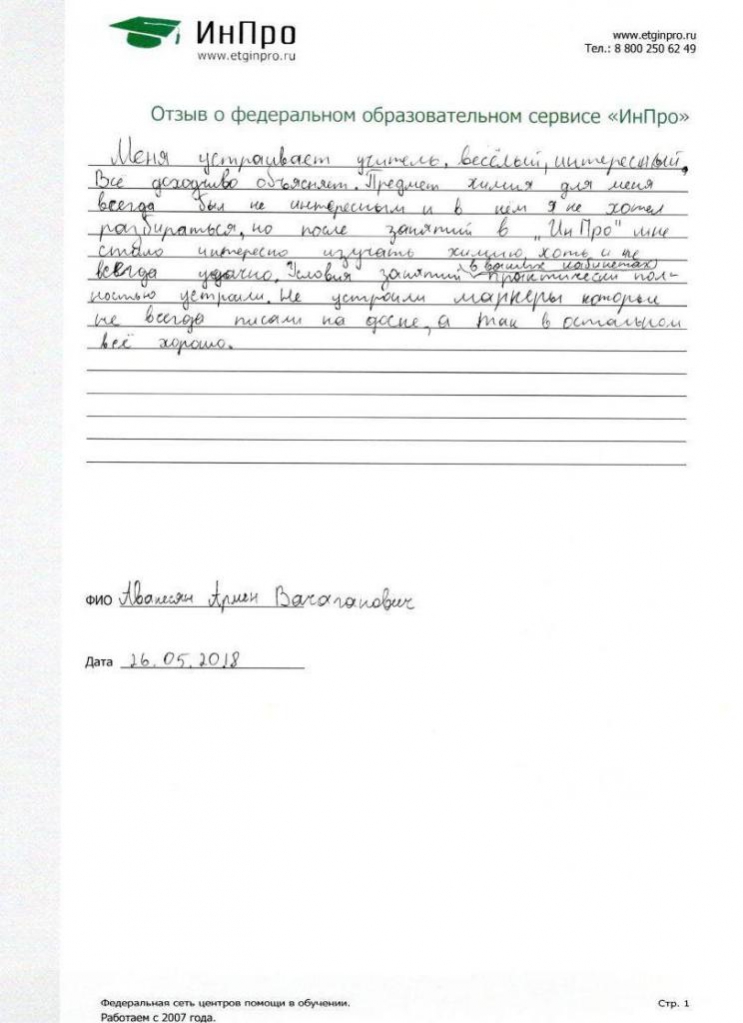 ИнПро
www.etginpro.ru
www.etginpro.ru
Тел.: 8 800 250 62 49
Отзыв о федеральном образовательном сервисе «ИнПро»
Меня устраивает учитель, весёлый, интересный,
Всё доходчиво объясняет. Предмет химия для меня
всегда был не интересным и в нем я не хотел
разбираться, но после занятий в "ИнПро" мне
стало интересно изучать химию, хоть и не
всегда удачно. Условия занятий в ваших кабинетах практически пол-
ностью устроили. Не устроили маркеры которые
не всегда писали на доске, а так в остальном
всё хорошо.
ФИО Аванесян Армен Вачаганович
Дата 26.05.2018
Федеральная сеть центров помощи в обучении.
Работаем с 2007 года.
Стр. 1